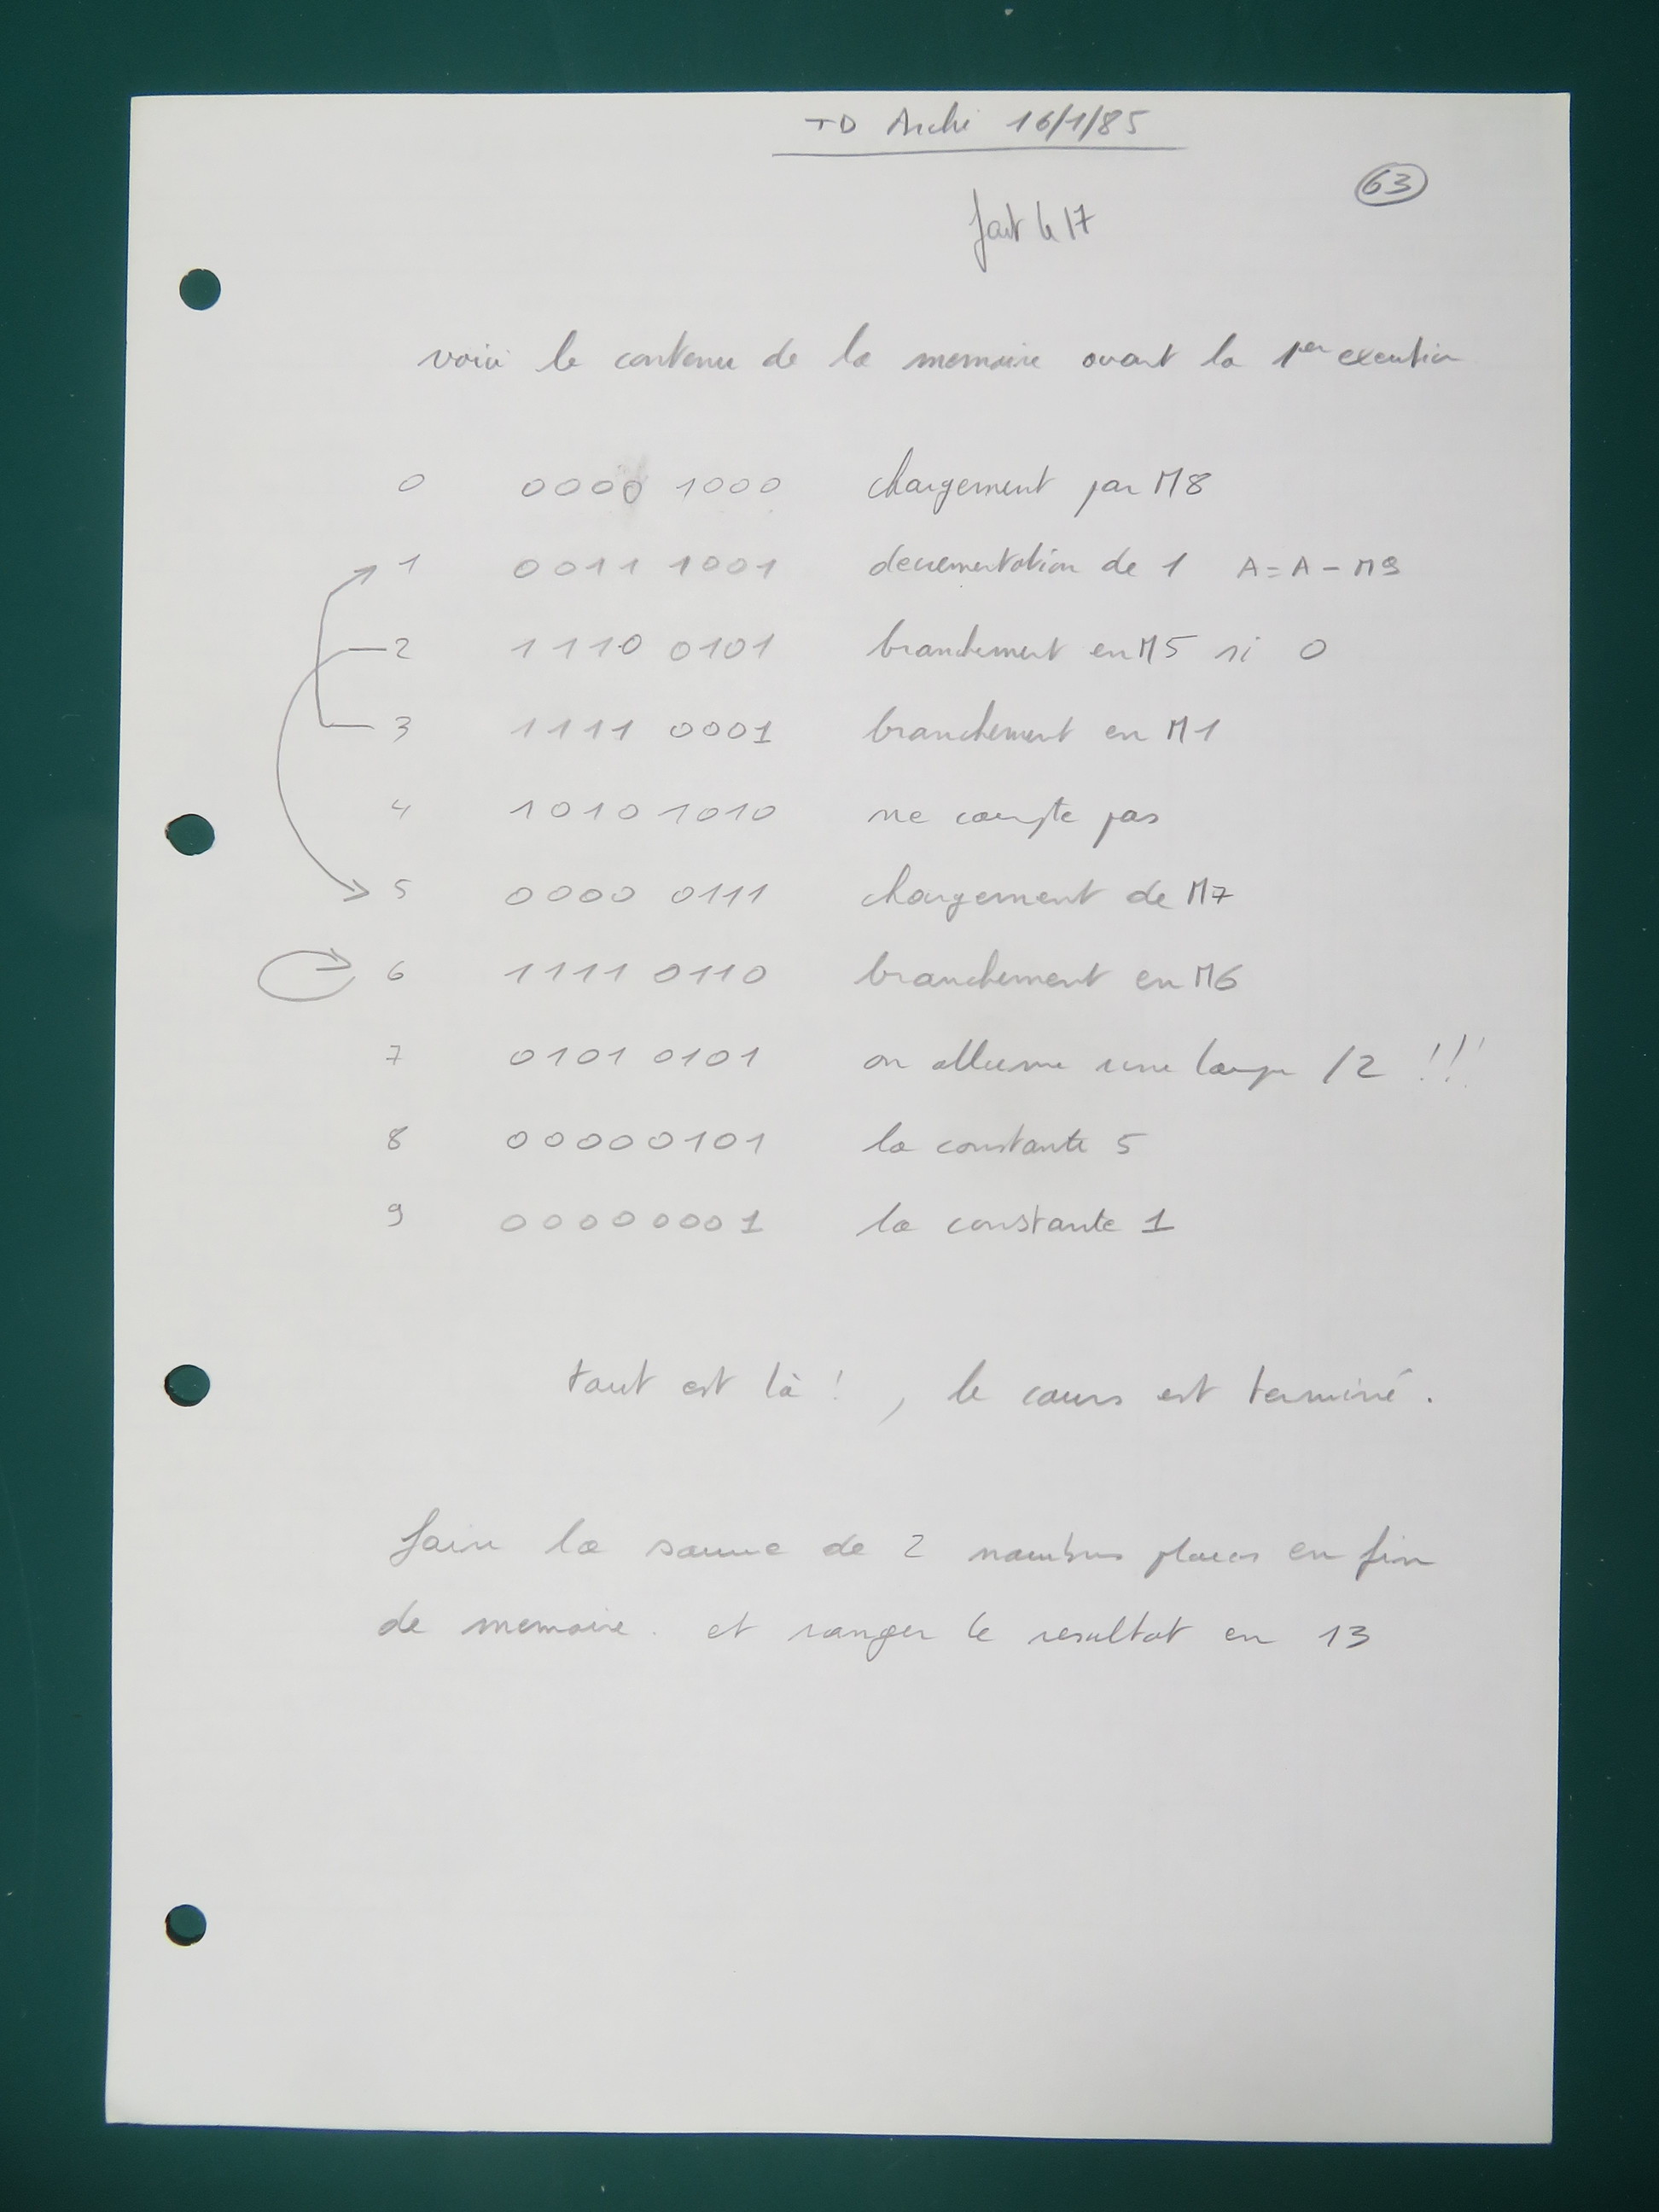 TD Archi 16/1/85
63
fait le 17
voici le contenu de la memoire avant la 1er execution
0 0000 1000 chargement par M8
1 0011 1001 decrementation de 1 A = A - M9
2 1110 0101 branchement en M5 si 0
3 1111 0001 branchement en M1
4 1010 1010 ne compte pas
5 0000 0111 chargement de M7
6 1111 0110 branchement en M6
7 0101 0101 on allume une lampe /2 !!!
8 00000101 la constante 5
9 00000001 la constante 1
tout est là ! , le cours est terminé.
faire la somme de 2 nombres placés en fin
de memoire. et ranger le resultat en 13